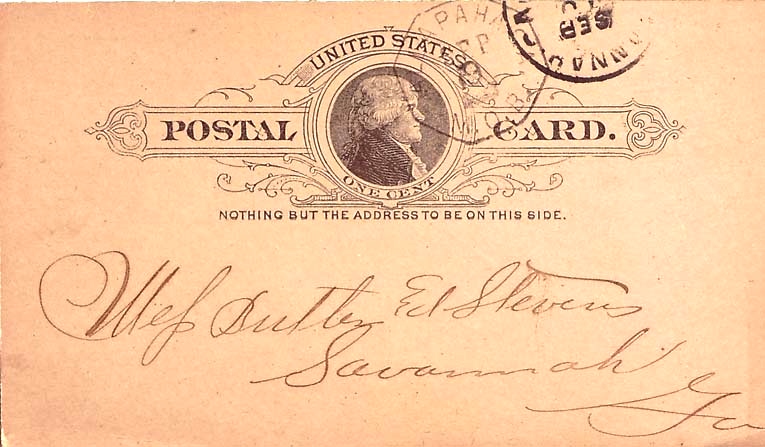 UNITED STATES
POSTAL CARD.
ONE CENT
NOTHING BUT THE ADDRESS TO BE ON THIS SIDE.
Butler Ed Stevens
Savannah
Ga
SEP